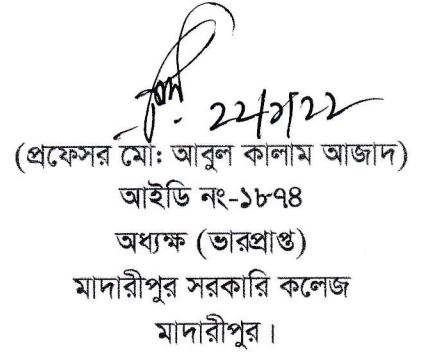 ২২/১/২২
(প্রফেসর মো: আবুল কালাম আজাদ)
আইডি নং-১৮৭৪
অধ্যক্ষ (ভারপ্রাপ্ত)
মাদারীপুর সরকারি কলেজ
মাদারীপুর।